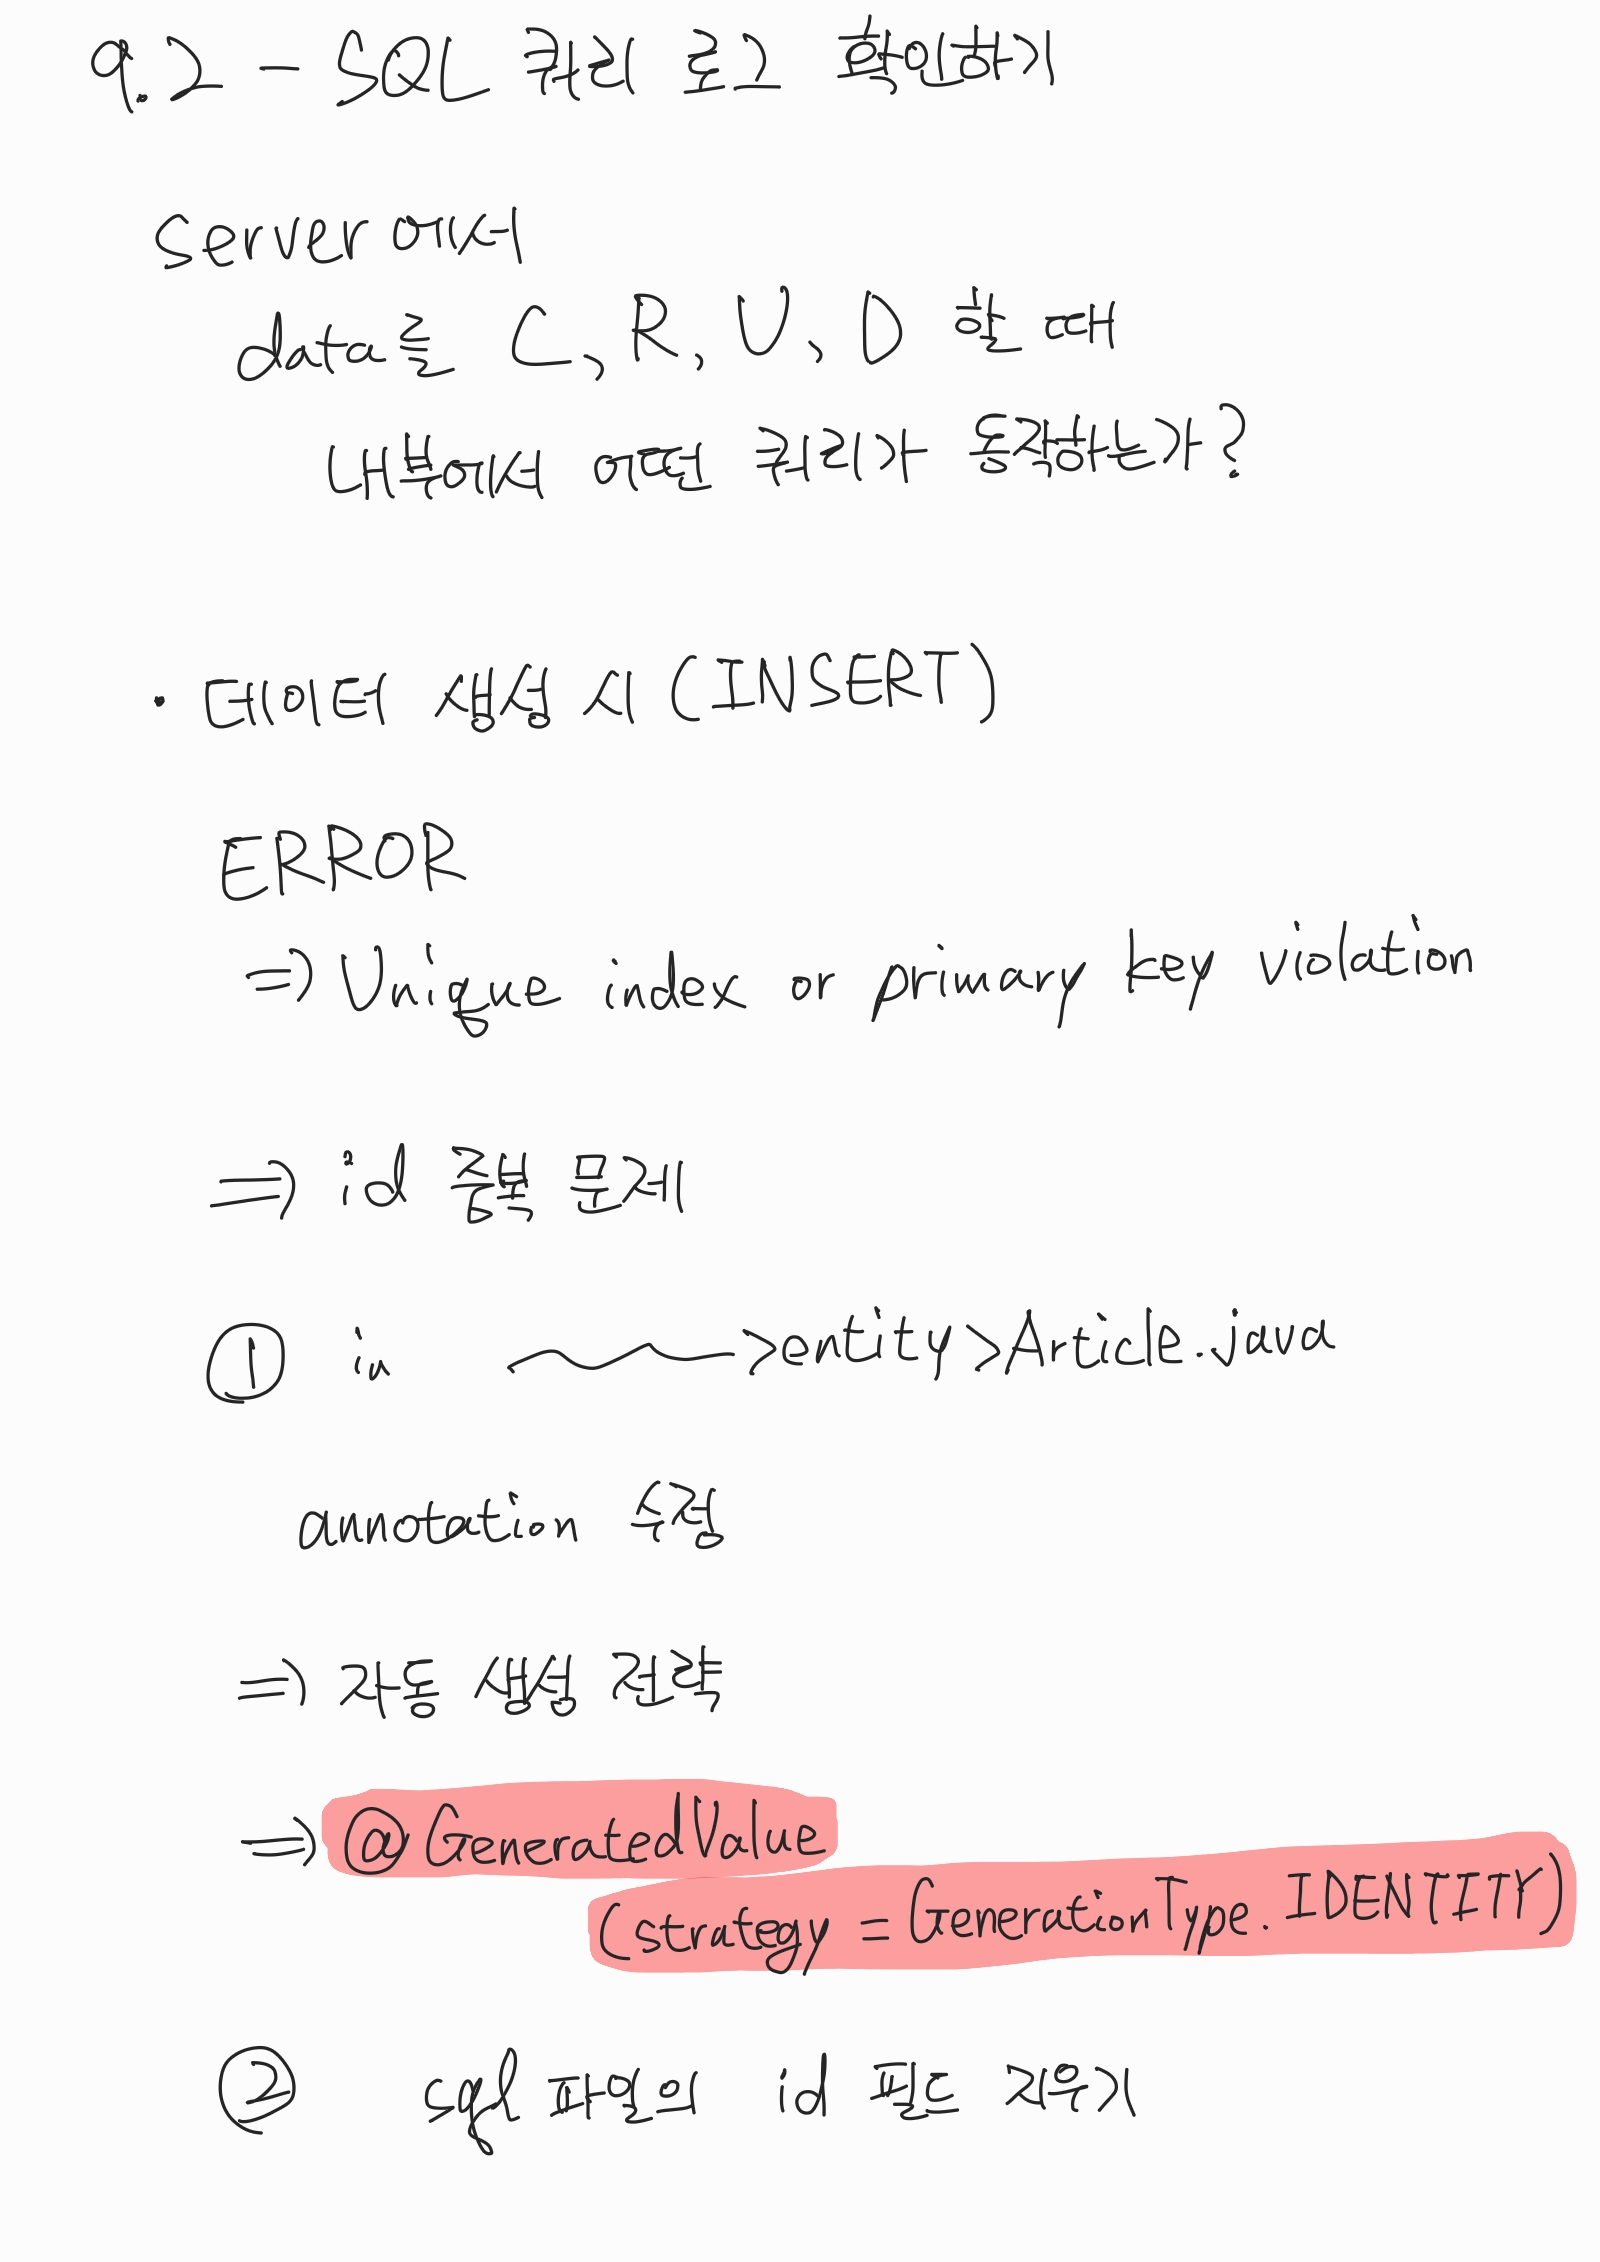 9.2 - SQL 쿼리 로그 확인하기
server에서
data를 C, R, U, D 할 때
내부에서 어떤 쿼리가 동작하는가?
· 데이터 생성 시 (INSERT)
ERROR
⇒ Unique index or primary key violation
⇒ id 중복 문제
① in ~~~>entity>Article.java
annotation 수정
⇒ 자동 생성 전략
⇒ @GeneratedValue
(strategy = GenerationType.IDENTITY)
② sql 파일의 id 필드 지우기